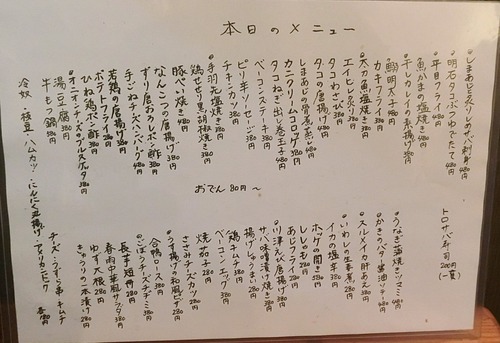 本日のメニュー
しまあじと炙りしめさばの刺身 480円
明石タコぶつゆでたて 480円
平目フライ 480円
魚かまの塩焼き 480円
干しカレイの素揚げ 380円
鰯明太子 480円
カキフライ 380円
太刀魚塩焼き 380円
エイヒレ炙り 380円
タコわさび 380円
タコの唐揚げ 380円
しまあじの骨煮蒸し 480円
カニクリームコロッケ 380円
タコねぎ出し巻玉子 480円
ベーコンステーキ 380円
ピリ辛ソーセージ 380円
チキンカツ 380円
手羽元塩焼き 380円
鶏せせり黒胡椒焼き 380円
豚ぺい焼き 480円
なんこつの唐揚げ 380円
ずり唐おろしポン酢 380円
手ごねチーズハンバーグ 480円
若鶏の唐揚げ 380円
ポテトフライ 280円
ひね鶏ポン酢 380円
オニオンチーズのブルスケッタ 380円
湯豆腐 380円
牛もつ鍋 580円
冷奴・枝豆・ハムカツ・にんにく丸揚げ・アメリカンドッグ
チーズ・うずら串・キムチ
各180円
おでん 80円〜
トロサバ寿司 200円(一貫)
うなぎ蒲焼きツマミ 480円
かきのバター醤油ソテー 480円
スルメイカ肝あえ 380円
いわしの生姜煮 280円
イカの塩辛 380円
ホッケの開き 380円
ししゃも 280円
あじフライ 280円
川津えび唐揚げ 380円
サンマ味噌漬け焼き 380円
揚げしゅうまい 280円
鶏キムチ 380円
ベーコンエッグ 380円
焼茄子 280円
ささみチーズカツ 280円
うす揚げの和風ピザ 280円
合鴨ロース 380円
ごぼうチーズチヂミ 380円
長芋短冊 280円
春雨中華風サラダ 380円
ゆず大根 280円
きゅうりの一本漬け 280円